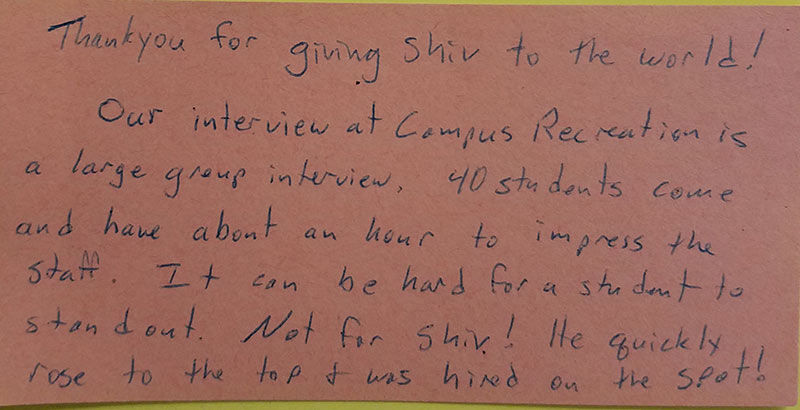 Thankyou for giving Shiv to the world!
Our interview at Campus Recreation is
a large group interview. 40 students come
and have about an hour to impress the
staff. It can be hard for a student to
stand out. Not for Shiv! He quickly
rose to the top & was hired on the spot!